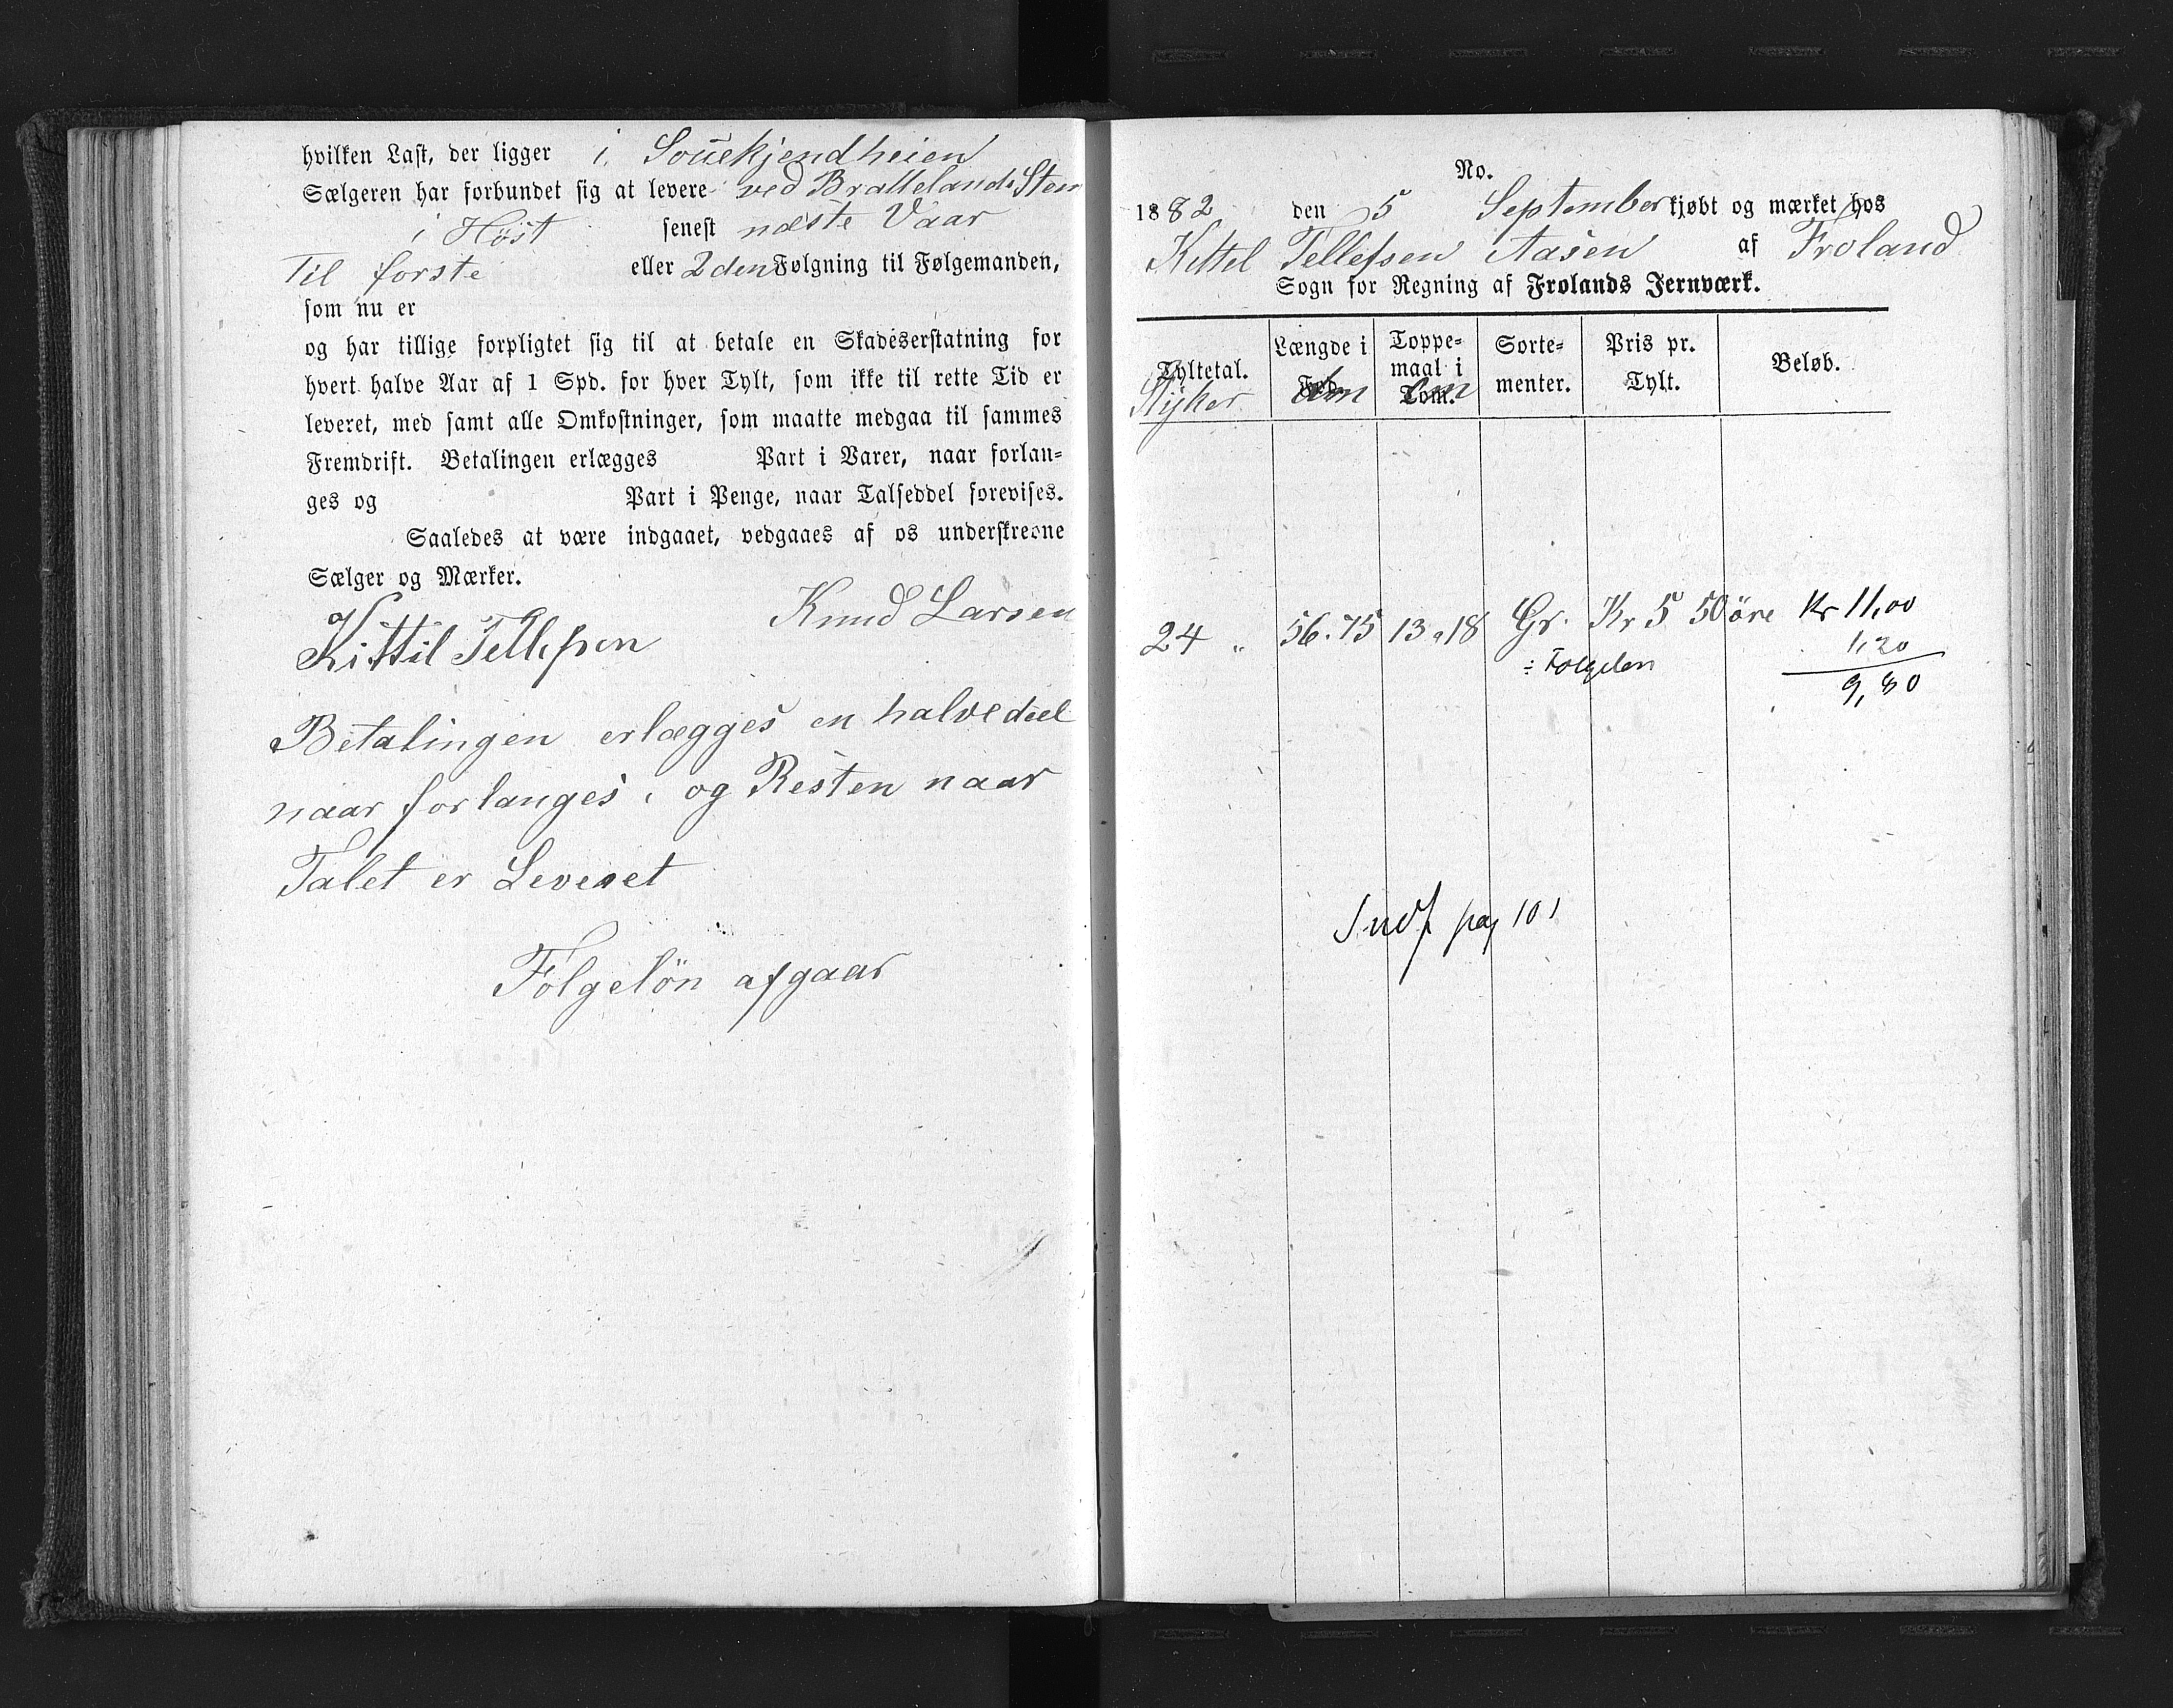 hvilken Last, der ligger i Souekjendheien
Sælgeren har forbundet sig at levere ved Brattelands Sten
i Höst senest næste Vaar
Til förste eller 2den Følgning til Følgemanden,
som nu er
og har tillige forpligtet sig til at betale en Skadeserstatning for
hvert halve Aar af 1 Spd. for hver Tylt, som ikke til rette Tid er
leveret, med samt alle Omkostninger, som maatte medgaa til sammes
Fremdrift. Betalingen erlægges Part i Varer, naar forlan-
ges og Part i Penge, naar Talseddel forevises.
Saaledes at være indgaaet, vedgaaes af os underskrevne
Sælger og Mærker.
Knud Larsen
Kittil Tellefsen
Betalingen erlægges en halvedeel
naar forlanges, og Resten naar
Talet er Leveret
Fölgelön afgaar
No.
1882 den 5 September kjøbt og mærket hos
Kittel Tellefsen Aasen af Froland
Sogn for Regning af Frolands Jernværk.
Tyltetal. Længde i Fod. Toppe-maal i Tom. Sorte-menter. Pris pr. Tylt. Beløb.
Stÿker
24 " 56.75 13 a 18 Gr. Kr 5 50 öre Kr 11,00
÷ Følgeløn 1,20
9,80
Indf pag 101